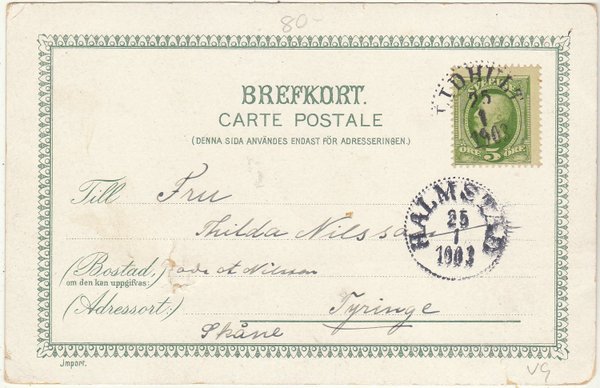 80-
BREFKORT.
CARTE POSTALE
(DENNA SIDA ANVÄNDES ENDAST FÖR ADRESSERINGEN.)
25
1
1903
ÖRE 5 ÖRE
Till Fru
Thilda Nilsson
HALMSTAD
25
1
1903
(Bostad:) Nilsson
om den kan uppgifvas:
(Adressort:) Tyringe
Skåne
Import.
VG